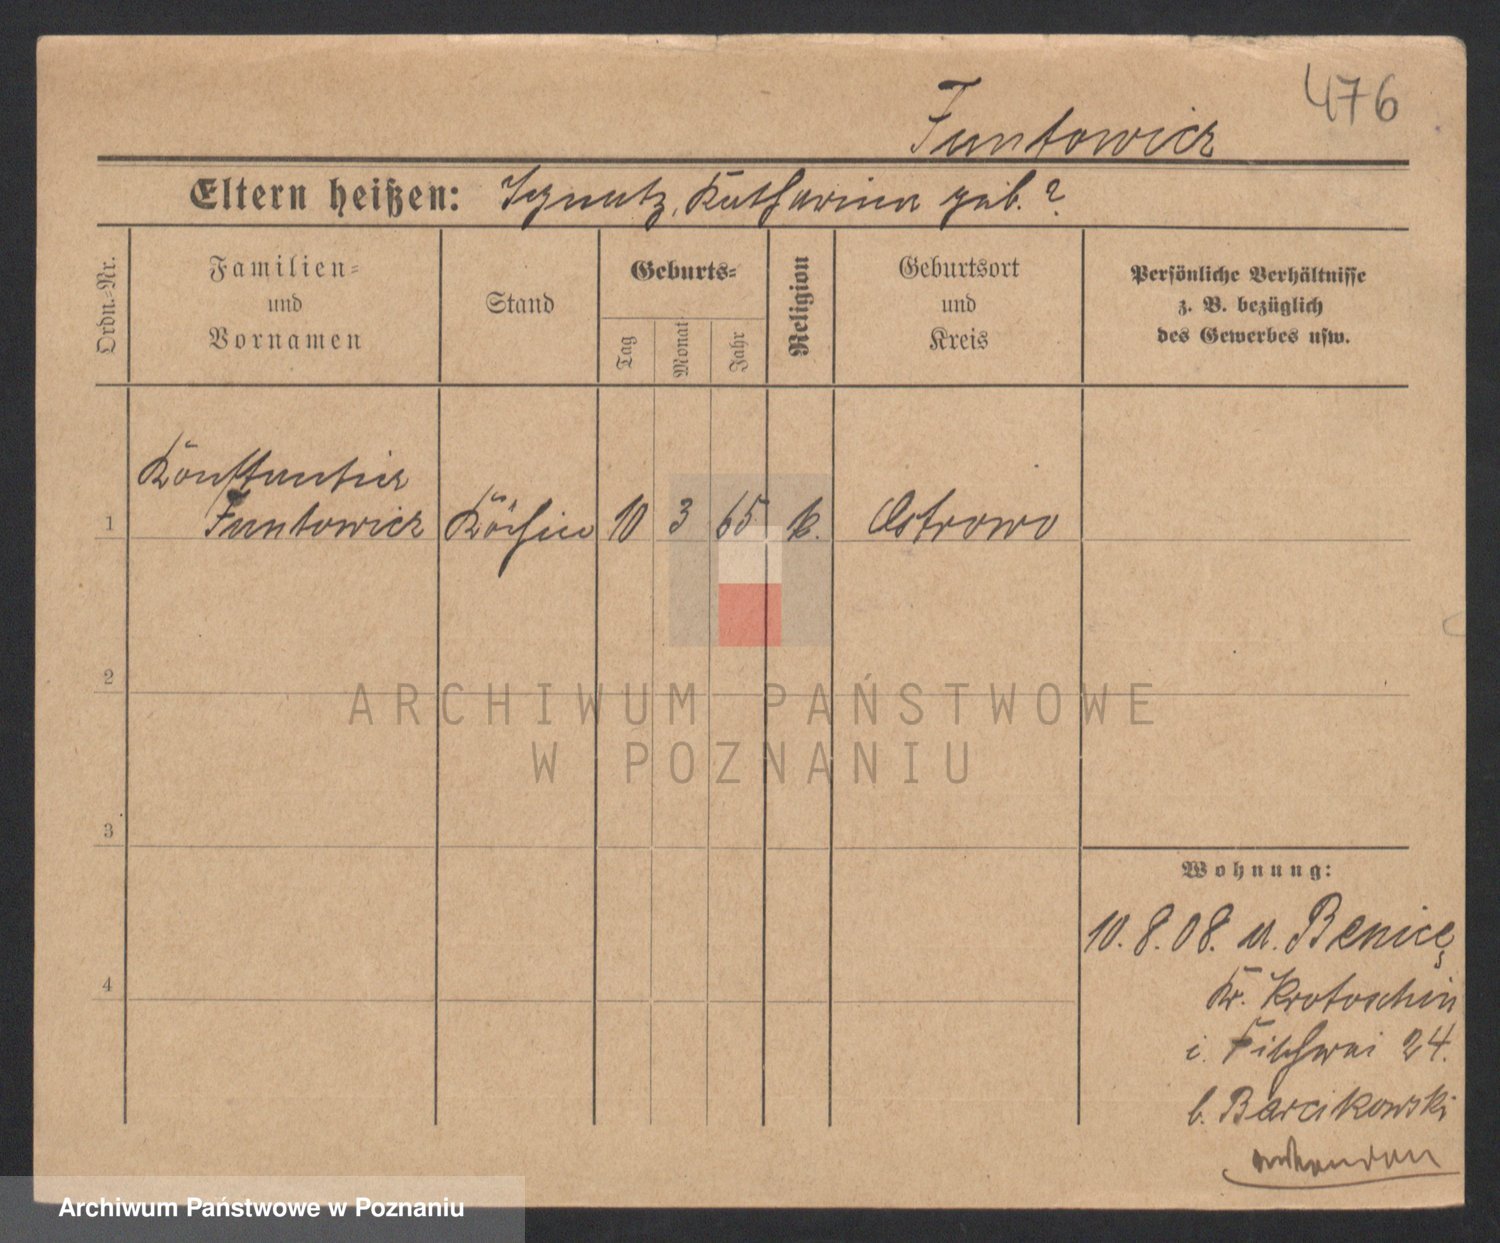 476
Funtowicz
Eltern heißen: Ignatz, Katharina geb. ?
Ordn.-Nr.
Familien-
und
Vornamen
Stand
Geburts-
Tag
Monat
Jahr
Religion
Geburtsort
und
Kreis
Persönliche Verhältnisse
z. B. bezüglich
des Gewerbes usw.
Konstantia
1 Funtowicz Köchin 10 3 65 k. Ostrowo
2
ARCHIWUM PAŃSTWOWE
W POZNANIU
3
Wohnung:
10. 8. 08. n. Benice
4
Kr. Krotoschin
i. Fischerei 24.
b. Barcikowski
Archiwum Państwowe w Poznaniu